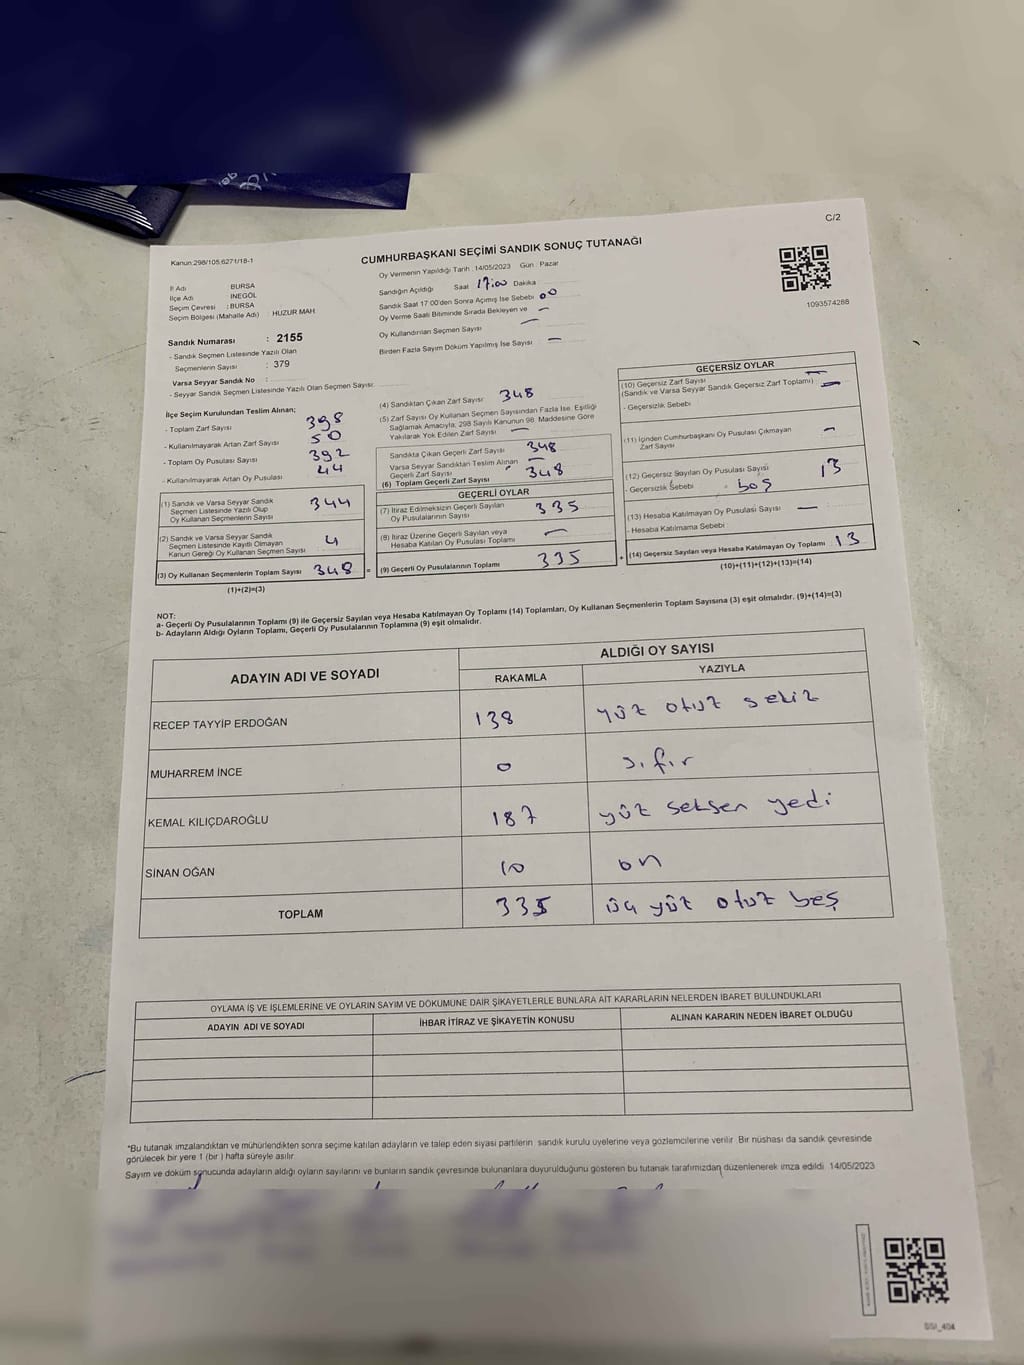 C/2
Kanun:298/105,6271/18-1
CUMHURBAŞKANI SEÇİMİ SANDIK SONUÇ TUTANAĞI
Oy Vermenin Yapıldığı Tarih : 14/05/2023 Gün : Pazar
İl Adı BURSA
İlçe Adı İNEGÖL
Seçim Çevresi : BURSA
Seçim Bölgesi (Mahalle Adı) : HUZUR MAH
Sandığın Açıldığı Saat 17:00 Dakika
Sandık Saat 17:00'den Sonra Açımış İse Sebebi
Oy Verme Saati Bitiminde Sırada Bekleyen ve
Oy Kullandırılan Seçmen Sayısı
Birden Fazla Sayım Döküm Yapılmış İse Sayısı
1093574288
Sandık Numarası : 2155
- Sandık Seçmen Listesinde Yazılı Olan
Seçmenlerin Sayısı : 379
Varsa Seyyar Sandık No :
- Seyyar Sandık Seçmen Listesinde Yazılı Olan Seçmen Sayısı:
İlçe Seçim Kurulundan Teslim Alınan;
- Toplam Zarf Sayısı 398
- Kullanılmayarak Artan Zarf Sayısı 50
- Toplam Oy Pusulası Sayısı 392
- Kullanılmayarak Artan Oy Pusulası 44
(1) Sandık ve Varsa Seyyar Sandık
Seçmen Listesinde Yazılı Olup
Oy Kullanan Seçmenlerin Sayısı 344
(2) Sandık ve Varsa Seyyar Sandık
Seçmen Listesinde Kayıtlı Olmayan
Kanun Gereği Oy Kullanan Seçmen Sayısı 4
(3) Oy Kullanan Seçmenlerin Toplam Sayısı 348 =
(1)+(2)=(3)
(4) Sandıktan Çıkan Zarf Sayısı 348
(5) Zarf Sayısı Oy Kullanan Seçmen Sayısından Fazla İse, Eşitliği
Sağlamak Amacıyla; 298 Sayılı Kanunun 98. Maddesine Göre
Yakılarak Yok Edilen Zarf Sayısı —
Sandıkta Çıkan Geçerli Zarf Sayısı 348
Varsa Seyyar Sandıktan Teslim Alınan
Geçerli Zarf Sayısı —
(6) Toplam Geçerli Zarf Sayısı 348
GEÇERLİ OYLAR
(7) İtiraz Edilmeksizin Geçerli Sayılan
Oy Pusulalarının Sayısı 335
(8) İtiraz Üzerine Geçerli Sayılan veya
Hesaba Katılan Oy Pusulası Toplamı —
(9) Geçerli Oy Pusulalarının Toplamı 335 +
GEÇERSİZ OYLAR
(10) Geçersiz Zarf Sayısı —
(Sandık ve Varsa Seyyar Sandık Geçersiz Zarf Toplamı) —
- Geçersizlik Sebebi
(11) İçinden Cumhurbaşkanı Oy Pusulası Çıkmayan
Zarf Sayısı —
(12) Geçersiz Sayılan Oy Pusulası Sayısı 13
- Geçersizlik Sebebi boş
(13) Hesaba Katılmayan Oy Pusulası Sayısı —
- Hesaba Katılmama Sebebi
(14) Geçersiz Sayılan veya Hesaba Katılmayan Oy Toplamı 13
(10)+(11)+(12)+(13)=(14)
NOT:
a- Geçerli Oy Pusulalarının Toplamı (9) ile Geçersiz Sayılan veya Hesaba Katılmayan Oy Toplamı (14) Toplamları, Oy Kullanan Seçmenlerin Toplam Sayısına (3) eşit olmalıdır. (9)+(14)=(3)
b- Adayların Aldığı Oyların Toplamı, Geçerli Oy Pusulalarının Toplamına (9) eşit olmalıdır.
ADAYIN ADI VE SOYADI
ALDIĞI OY SAYISI
RAKAMLA YAZIYLA
RECEP TAYYİP ERDOĞAN 138 yüz otuz sekiz
MUHARREM İNCE 0 sıfır
KEMAL KILIÇDAROĞLU 187 yüz seksen yedi
SİNAN OĞAN 10 on
TOPLAM 335 üç yüz otuz beş
OYLAMA İŞ VE İŞLEMLERİNE VE OYLARIN SAYIM VE DÖKÜMÜNE DAİR ŞİKAYETLERLE BUNLARA AİT KARARLARIN NELERDEN İBARET BULUNDUKLARI
ADAYIN ADI VE SOYADI İHBAR İTİRAZ VE ŞİKAYETİN KONUSU ALINAN KARARIN NEDEN İBARET OLDUĞU
*Bu tutanak imzalandıktan ve mühürlendikten sonra seçime katılan adayların ve talep eden siyasi partilerin, sandık kurulu üyelerine veya gözlemcilerine verilir. Bir nüshası da sandık çevresinde
görülecek bir yere 1 (bir) hafta süreyle asılır.
Sayım ve döküm sonucunda adayların aldığı oyların sayılarını ve bunların sandık çevresinde bulunanlara duyurulduğunu gösteren bu tutanak tarafımızdan düzenlenerek imza edildi. 14/05/2023
SSI_404